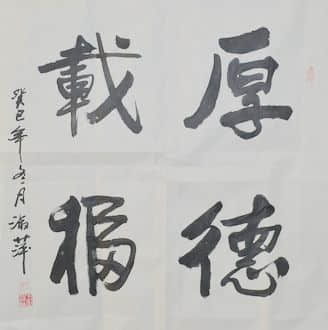 厚德
載福
癸巳年冬月淑萍